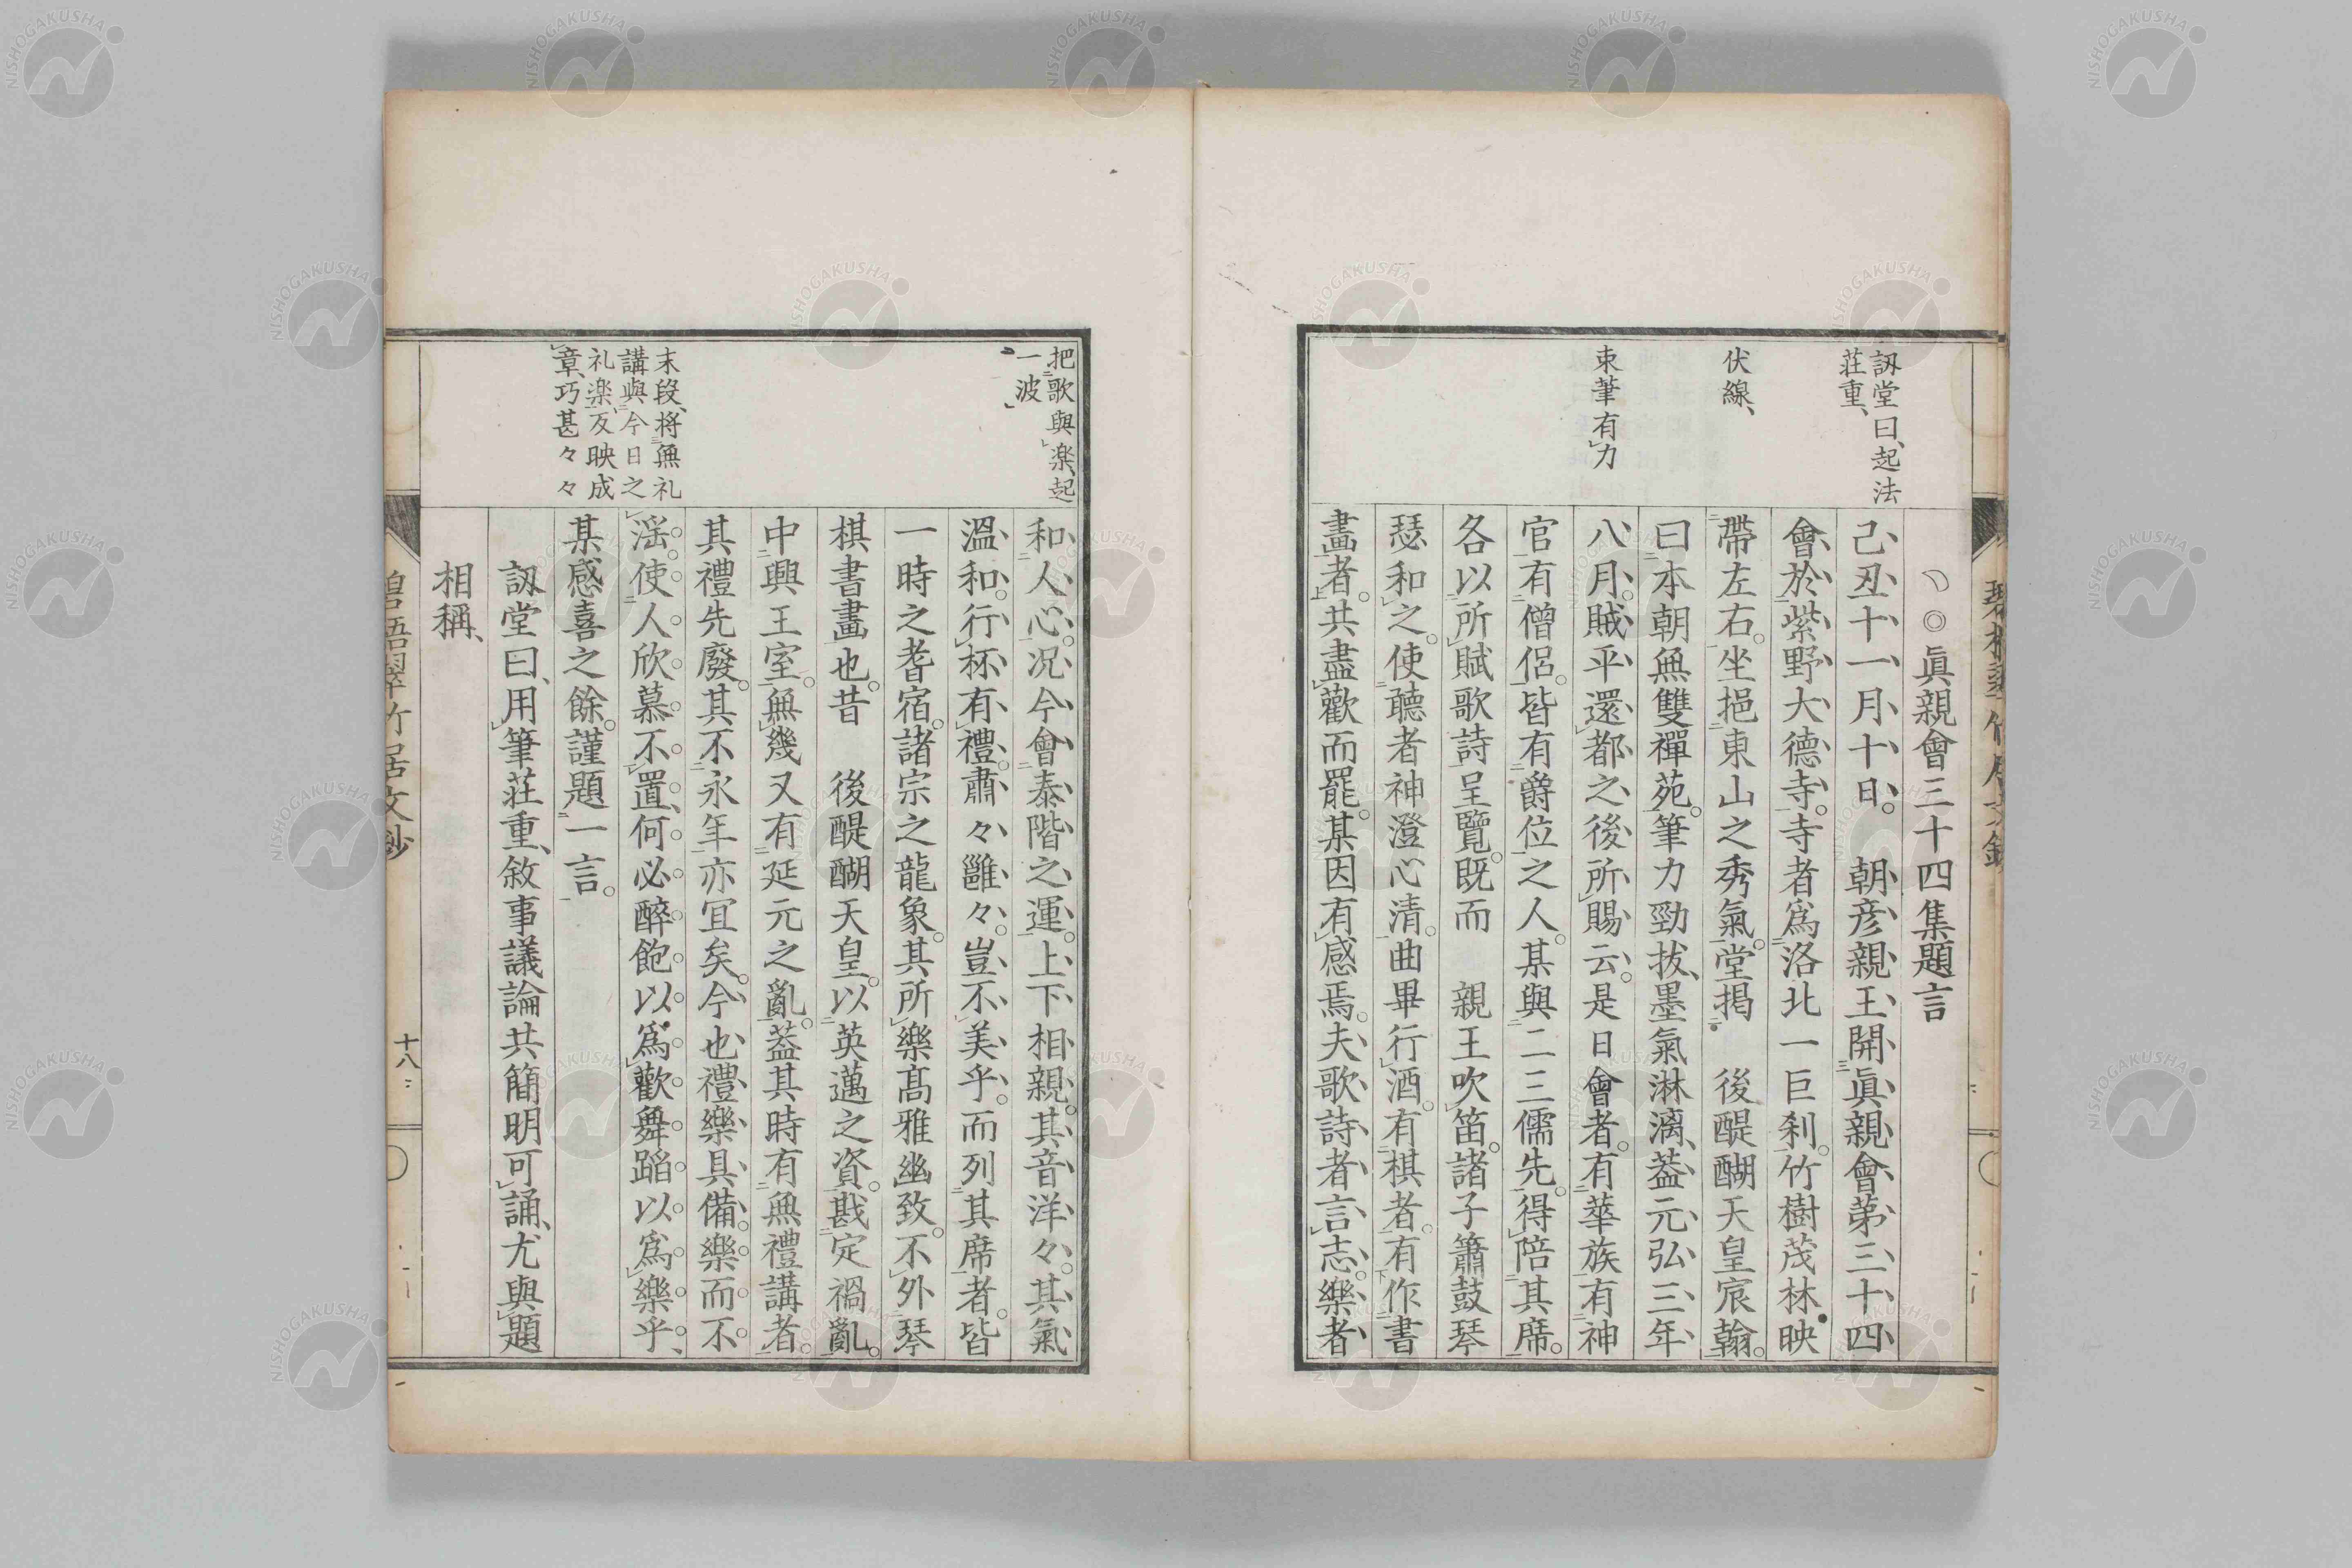 ◎眞親會三十四集題言
訒堂曰、起法
荘重、
己丑十一月十日。　朝彦親王開眞親會第三十四
會於紫野大德寺。寺者爲洛北一巨刹。竹樹茂林映
伏線、
帶左右。坐挹東山之秀氣。堂掲　後醍醐天皇宸翰。
曰本朝無雙禪苑。筆力勁拔、墨氣淋漓、蓋元弘三年
束筆有力
八月。賊平還都之後所賜云。是日會者。有華族有神
官有僧侶。皆有爵位之人。某與二三儒先。得陪其席。
各以所賦歌詩呈覽。既而　親王吹笛。諸子簫鼓琴
瑟和之。使聽者神澄心清。曲畢行酒。有棋者。有作書
畫者。共盡歡而罷。某因有感焉。夫歌詩者言志。樂者
把歌與楽、起
一波
和人心。况今會泰階之運。上下相親。其音洋々。其氣
溫和。行杯有禮。肅々雝々。豈不美乎。而列其席者。皆
一時之耆宿。諸宗之龍象。其所樂高雅幽致。不外琴
棋書畫也。昔　後醍醐天皇。以英邁之資。戡定禍亂。
中興王室。無幾又有延元之亂。蓋其時有無禮講者。
其禮先廢。其不永年亦宜矣。今也禮樂具備。樂而不
末段、将無礼
講與今日之
礼楽、反映成
章、巧甚々々
淫。使人欣慕不置、何必醉飽以爲歡舞蹈以爲樂乎、
某感喜之餘。謹題一言。
訒堂曰、用筆荘重、敘事議論共簡明可誦、尤與題
相稱、
碧梧翠竹居文鈔
十八